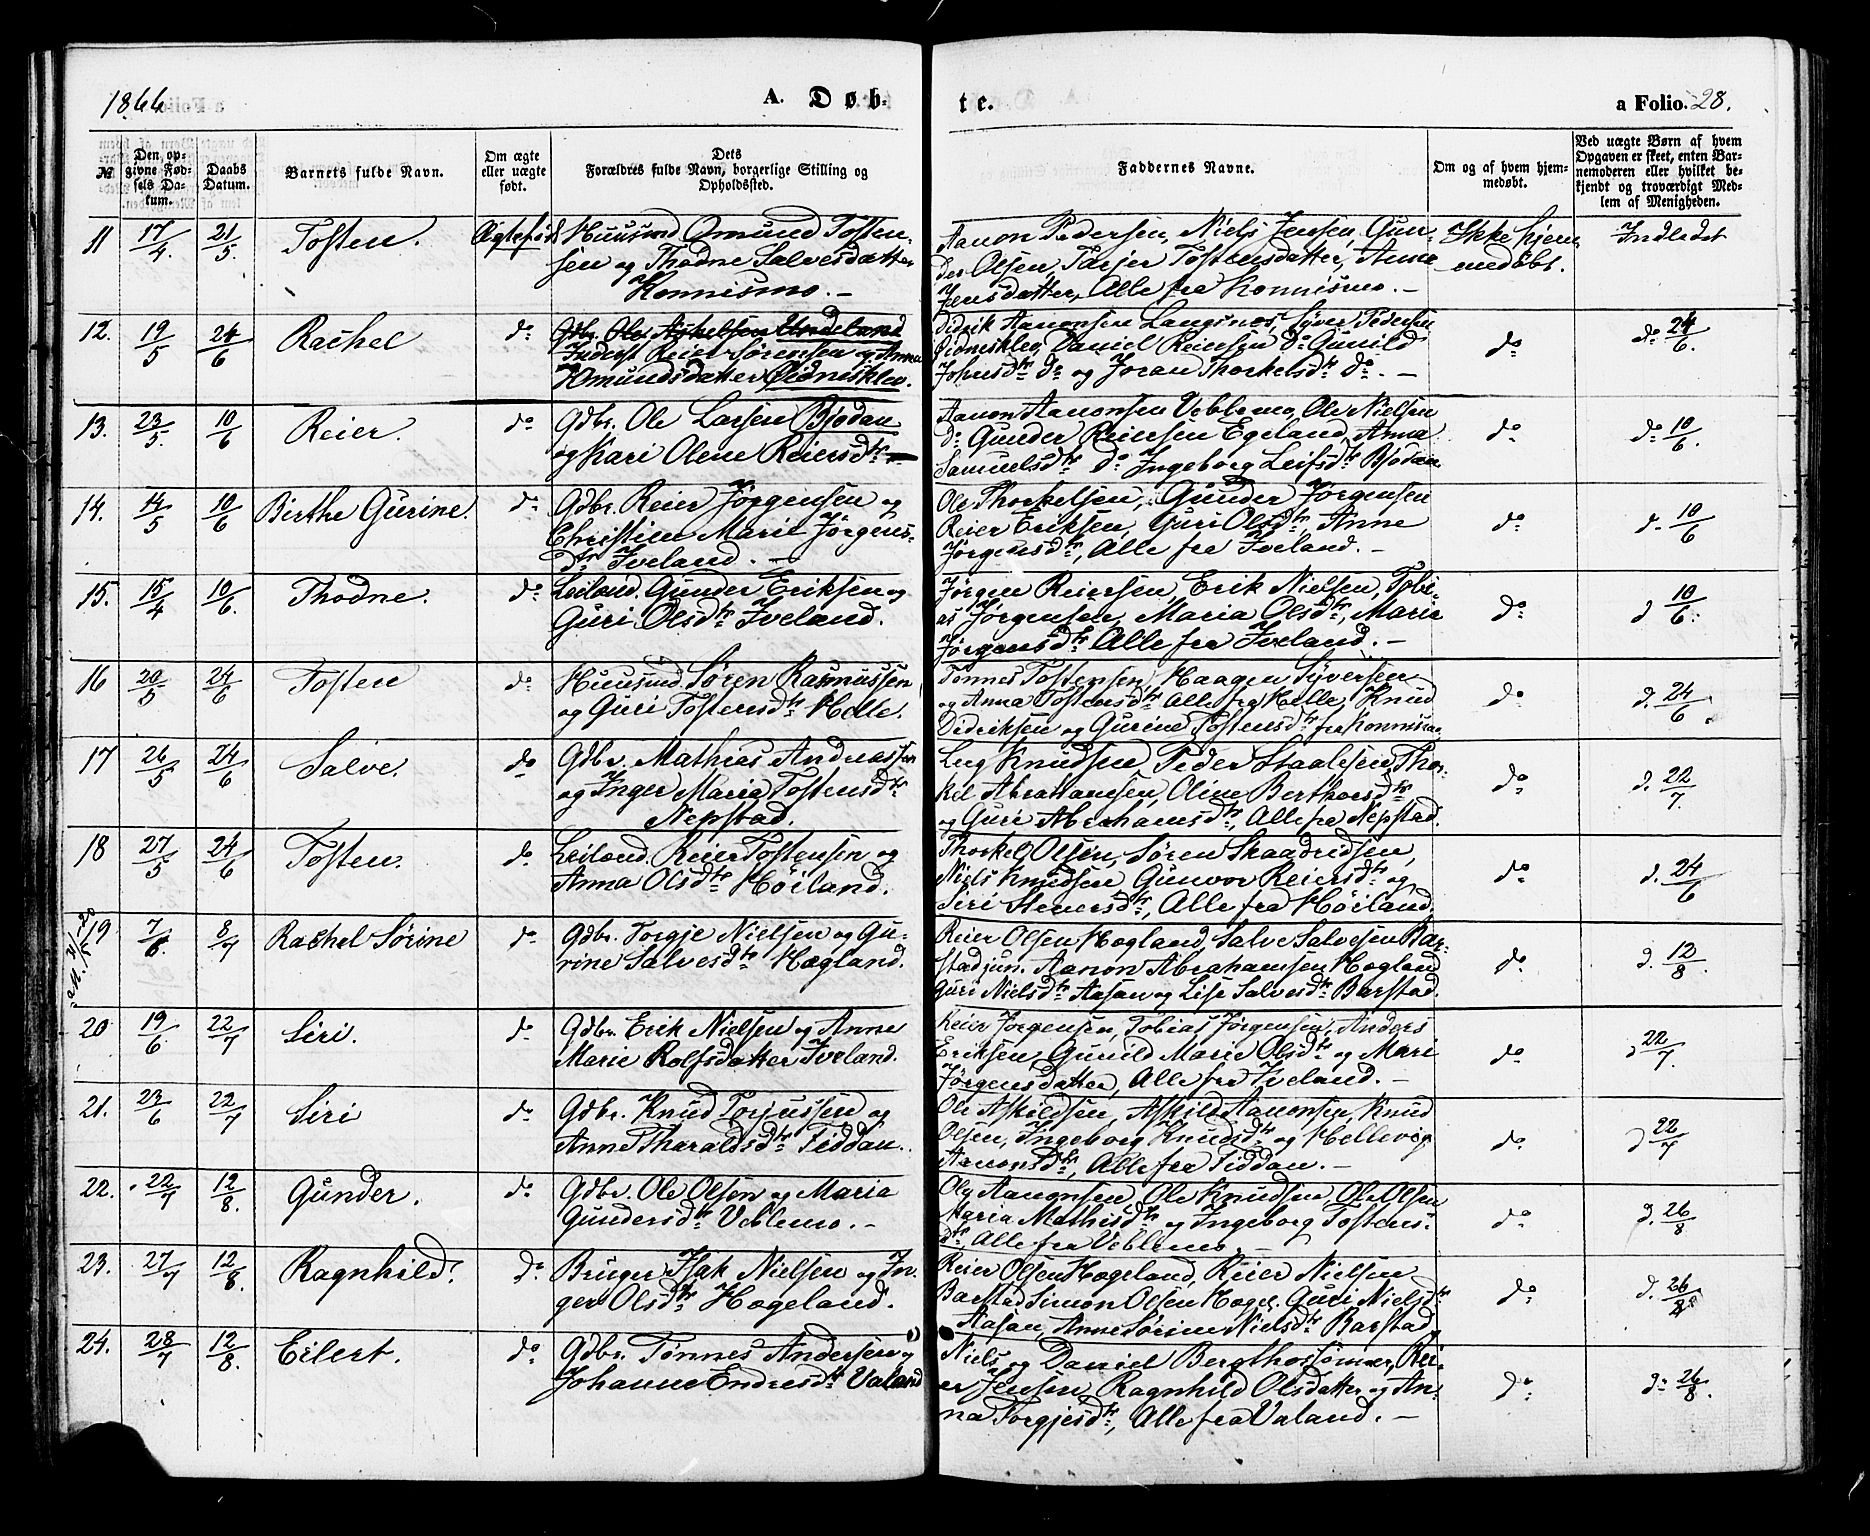 1866
A. Døb-
te.
a Folio. 28.
№
Den op-
givne Fød-
sels Da-
tum.
Daabs
Datum.
Barnets fulde Navn.
Om ægte
eller uægte
født.
Dets
Forældres fulde Navn, borgerlige Stilling og
Opholdssted.
Faddernes Navne.
Om og af hvem hjem-
medøbt.
Ved uægte Børn af hvem
Opgaven er skeet, enten Bar-
nemoderen eller hvilket be-
kjendt og troværdigt Med-
lem af Menigheden.
11 17/4. 21/5. Tosten. Ægtefød. Huusmd Omund Tosten-
sen og Thodne Salvesdatter
Konnismo. –
Aanon Pedersen, Niels Jensen, Gun-
der Olsen, Tarjer Tostensdatter, Anne
Jensdatter, Alle fra Konnismo. –
Ikke hjem-
medøbt.
Indledet
12. 19/5 24/6 Rachel do
Reier Sørensen og Anna
Omundsdatter Eidnisklev.
Didrik Aanonsen Langsnes, Syver Pedersen
Eidnisklev, Daniel Reiersen do Gunild
Johnsdtr do og Joran Thorkelsdtr do. –
do
do 24/6.
13. 23/5 10/6 Reier. do Gdbr. Ole Larsen Bjodan
og Kari Olene Reiersdtr
Aanon Aanonsen Veblemo, Ole Nielsen
do Gunder Reiersen Egeland, Anna
Samuelsdtr do Ingeborg Leifsdtr Bjodan
do
do 10/6.
14. 14/5 10/6 Birthe Gurine. do Gdbr. Reier Jørgensen og
Christine Marie Jørgens-
dtr Iveland. –
Ole Thorkelsen, Gunder Jørgensen
Reier Eriksen, Guri Olsdtr, Anne
Jørgensdtr, Alle fra Iveland. –
do
d. 10/6
15. 15/4 10/6. Thodne. do Leilænd. Gunder Eriksen og
Guri Olsdtr Iveland.
Jørgen Reiersen, Erik Nielsen, Tobi-
as Jørgensen, Maria Olsdtr, Maria
Jørgensdtr Alle fra Iveland. –
do
d 10/6.
16 20/5 24/6 Tosten do Huusmd. Søren Rasmussen
og Guri Tostensdtr Helle.
Tønnes Tostensen, Haagen Syversen
og Anna Tostensdtr Alle fra Helle, Knud
Didriksen og Gurine Tostensdtr fra Konnismo
do
d. 24/6
17 26/5 24/6 Salve. do Gdbr. Mathias Andreassen
og Inger Maria Tostensdtr
Nepstad.
Knudsen Peder Staalesen, Thor-
kel Abrahamsen, Oline Berthorsdtr
og Guri Abrahamsdtr, Alle fra Nepstad.
do
d. 22/7.
18 27/5 24/6 Tosten. do Leilænd. Reier Tostensen og
Anna Olsdtr Høiland.
Thorkel Olsen, Søren Skaadridsen,
Niels Knudsen Gunvor Reiersdtr og
Siri Stenersdtr, Alle fra Høiland.
do
d. 24/6
19 7/6. 8/7 Rachel Sørine do Gdbr. Torgje Nielsen og Gu-
rine Salvesdtr Hægland.
Reier Olsen Hægland, Salve Salvesen Bar-
stad jun. Aanon Abrahamsen Hægland
Guri Nielsdtr Aasan og Lise Salvesdtr Barstad.
do
d. 12/8.
20 19/6. 22/7 Siri. do Gdbr. Erik Nielsen og Anne
Marie Rolfsdatter Iveland.
Reier Jørgensen, Tobias Jørgensen, Anders
Eriksen, Gunild Marie Olsdtr og Mari
Jørgensdatter, Alle fra Iveland. –
do
d 22/7.
21. 23/6 22/7 Siri do Gdbr. Knud Torjussen og
Anne Tharaldsdtr Fiddan.
Ole Askildsen, Askild Aanonsen, Knud
Olsen, Ingeborg Knudsdtr og Hellevig
Aanonsdtr, Alle fra Fiddan. –
do
d 22/7
22. 22/7 12/8. Gunder. do Gdbr. Ole Olsen og Maria
Gundersdtr Veblemo. –
Ole Aanonsen, Ole Knudsen, Ole Olsen
Maria Mathisdtr og Ingeborg Tostens-
dtr Alle fra Veblemo. –
do
d. 26/8
23. 27/7 12/8 Ragnhild. do Bruger Isak Nielsen og In-
ger Olsdtr Hægeland.
Reier Olsen Hægeland, Reier Nielsen
Barstad Simon Olsen Hægel. Guri Nielsdtr
Aasan, Anne Sørine Nielsdtr Barstad.
do
d. 26/8
24. 28/7 12/8. Eilert. do Gdbr. Tønnes Andersen og
Johanne Endresdtr Valand
Niels og Daniel Bergthossønner, Rei-
er Jensen, Ragnhild Olsdatter og An-
na Torgjesdtr, Alle fra Valand. –
do
do 26/8.